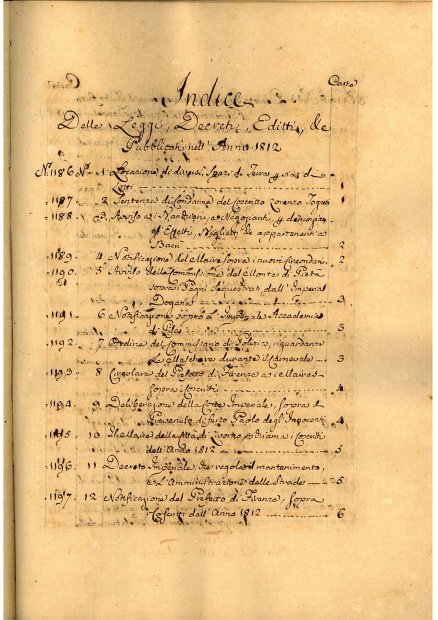 Carte
Indice
Delle Leggi, Decreti, Editti, &c
Pubblicati nell'Anno 1812
N.º 1186 N.º 1 Locazione di diversi Spazi di Terra
1
1187 2 Sentenza di Condanna del Coscritto Lorenzo 1
1188 3 Avviso ai Banchieri, e Negozianti
d'Effetti, Biglietti, &c appartenenti a
2
1189 4 Notificazione del Maire sopra i nuovi 2
1190 5 Avviso della Commissione del Monte di Pietà
sopra i Pegni sequestrati dall'Imperial
Dogana 3
1191 6 Notificazione sopra l'Imperiale Accademia
di Pisa 3
1192 7 Ordine del Commissario di Polizia, riguardante
Le Maschere durante il Carnevale 3
1193 8 Circolare del Prefetto di Firenze ai Maires
sopra i Coscritti 4
1194 9 Deliberazione della Corte Imperiale, sopra il
degl'Innocenti 4
1195 10 Il Maire della Città di Livorno, i Coscritti
dell'Anno 1812 5
1196 11 Decreto Imperiale che regola il mantenimento,
e l'Amministrazione delle Strade 5
1197 12 Notificazione del Prefetto di Firenze, sopra
dell'Anno 1812 6